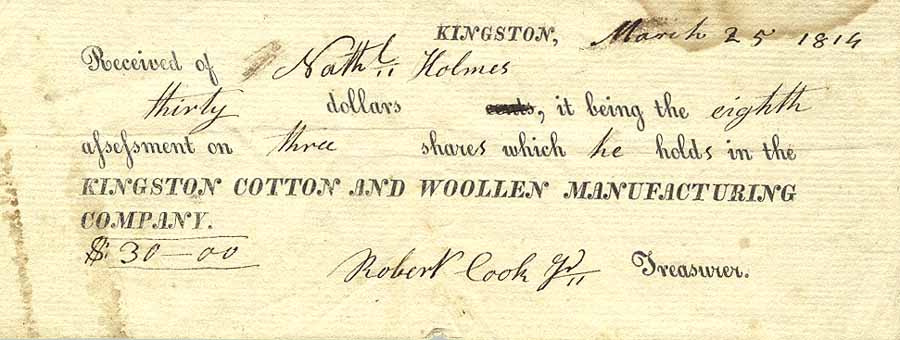 KINGSTON, March 25 1814
Received of Nathl Holmes
thirty dollars cents, it being the eighth
aſseſsment on three shares which he holds in the
KINGSTON COTTON AND WOOLLEN MANUFACTURING
COMPANY.
$ 30—00
Robert Cook Jr Treasurer.